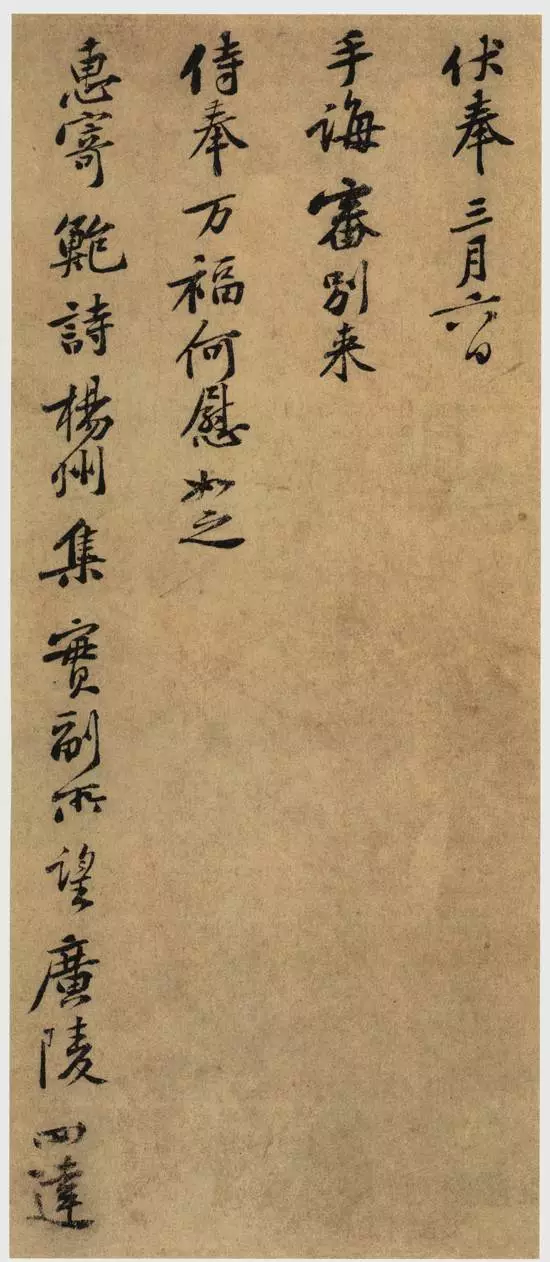 伏奉三月六日
手誨審别来
侍奉万福何慰如之
惠寄鮑詩楊州集實副所望廣陵四達